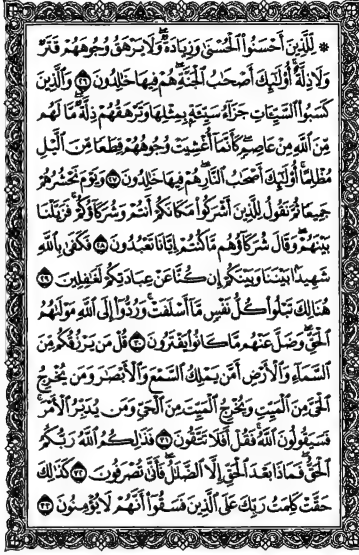 ۞ لِّلَّذِينَ أَحْسَنُوا۟ ٱلْحُسْنَىٰ وَزِيَادَةٌ ۖ وَلَا يَرْهَقُ وُجُوهَهُمْ قَتَرٌ
وَلَا ذِلَّةٌ ۚ أُو۟لَـٰٓئِكَ أَصْحَـٰبُ ٱلْجَنَّةِ ۖ هُمْ فِيهَا خَـٰلِدُونَ ٢٦ وَٱلَّذِينَ
كَسَبُوا۟ ٱلسَّيِّـَٔاتِ جَزَآءُ سَيِّئَةٍۭ بِمِثْلِهَا وَتَرْهَقُهُمْ ذِلَّةٌ ۖ مَّا لَهُم
مِّنَ ٱللَّهِ مِنْ عَاصِمٍ ۖ كَأَنَّمَآ أُغْشِيَتْ وُجُوهُهُمْ قِطَعًا مِّنَ ٱلَّيْلِ
مُظْلِمًا ۚ أُو۟لَـٰٓئِكَ أَصْحَـٰبُ ٱلنَّارِ ۖ هُمْ فِيهَا خَـٰلِدُونَ ٢٧ وَيَوْمَ نَحْشُرُهُمْ
جَمِيعًا ثُمَّ نَقُولُ لِلَّذِينَ أَشْرَكُوا۟ مَكَانَكُمْ أَنتُمْ وَشُرَكَآؤُكُمْ ۚ فَزَيَّلْنَا
بَيْنَهُمْ ۖ وَقَالَ شُرَكَآؤُهُم مَّا كُنتُمْ إِيَّانَا تَعْبُدُونَ ٢٨ فَكَفَىٰ بِٱللَّهِ
شَهِيدًۢا بَيْنَنَا وَبَيْنَكُمْ إِن كُنَّا عَنْ عِبَادَتِكُمْ لَغَـٰفِلِينَ ٢٩
هُنَالِكَ تَبْلُوا۟ كُلُّ نَفْسٍ مَّآ أَسْلَفَتْ ۚ وَرُدُّوٓا۟ إِلَى ٱللَّهِ مَوْلَىٰهُمُ
ٱلْحَقِّ ۖ وَضَلَّ عَنْهُم مَّا كَانُوا۟ يَفْتَرُونَ ٣٠ قُلْ مَن يَرْزُقُكُم مِّنَ
ٱلسَّمَآءِ وَٱلْأَرْضِ أَمَّن يَمْلِكُ ٱلسَّمْعَ وَٱلْأَبْصَـٰرَ وَمَن يُخْرِجُ
ٱلْحَىَّ مِنَ ٱلْمَيِّتِ وَيُخْرِجُ ٱلْمَيِّتَ مِنَ ٱلْحَىِّ وَمَن يُدَبِّرُ ٱلْأَمْرَ ۚ
فَسَيَقُولُونَ ٱللَّهُ ۚ فَقُلْ أَفَلَا تَتَّقُونَ ٣١ فَذَٰلِكُمُ ٱللَّهُ رَبُّكُمُ
ٱلْحَقُّ ۖ فَمَاذَا بَعْدَ ٱلْحَقِّ إِلَّا ٱلضَّلَـٰلُ ۖ فَأَنَّىٰ تُصْرَفُونَ ٣٢ كَذَٰلِكَ
حَقَّتْ كَلِمَتُ رَبِّكَ عَلَى ٱلَّذِينَ فَسَقُوٓا۟ أَنَّهُمْ لَا يُؤْمِنُونَ ٣٣